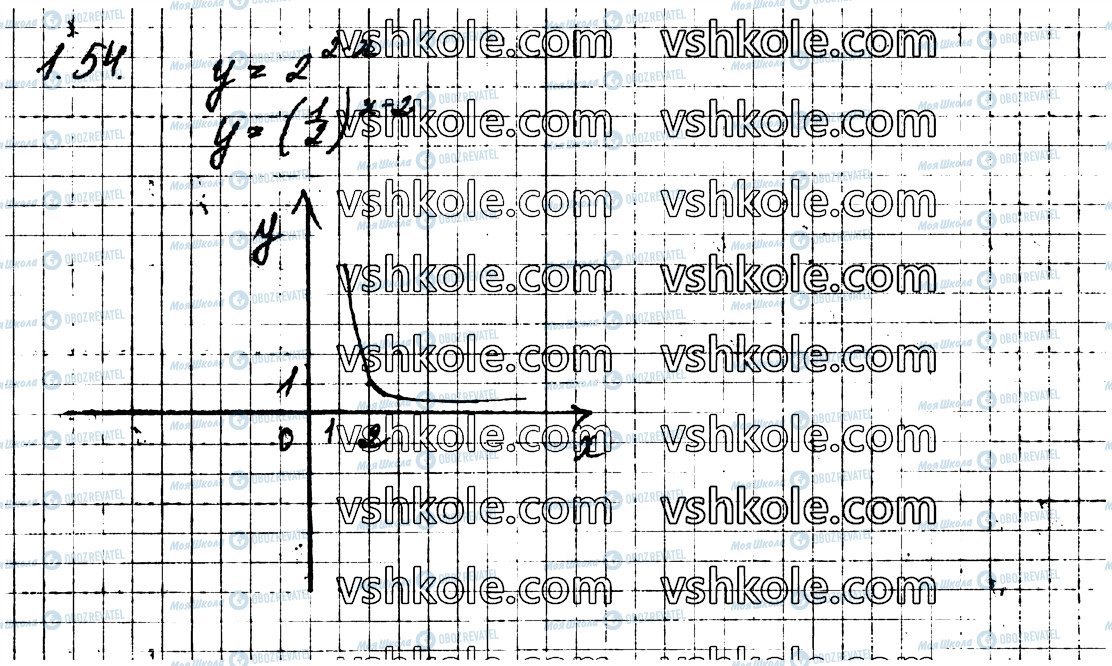 1.54.
y = 2^{2-x}
y = (1/2)^{x-2}
y
1
0 1 2 x
vshkole.com vshkole.com
vshkole.com vshkole.com
vshkole.com vshkole.com
vshkole.com vshkole.com
vshkole.com vshkole.com
vshkole.com vshkole.com
vshkole.com vshkole.com
vshkole.com vshkole.com
МояШкола OBOZREVATEL